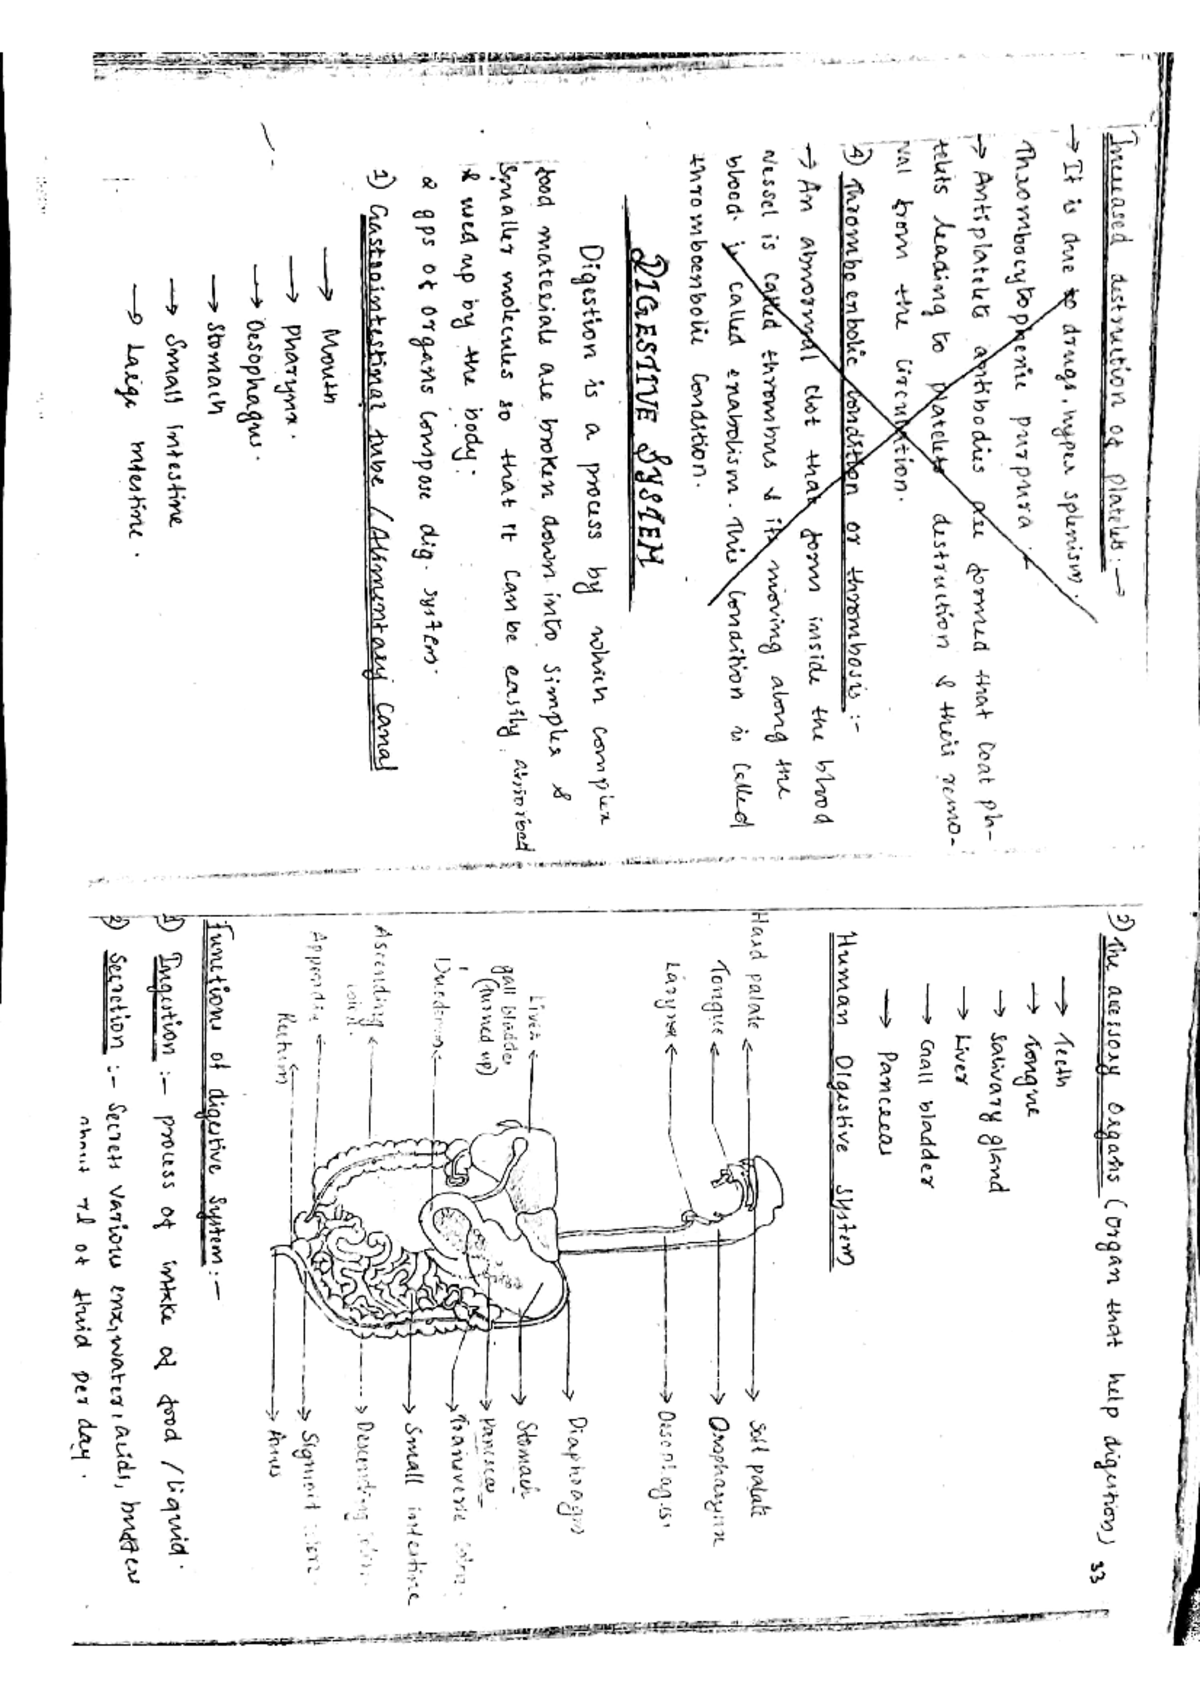 Increased destruction of platelets :→
→ It is due to drugs, hyper splenism.
Thrombocytophenic purpura :-
→ Antiplatelets antibodies are formed that coat pla-
telets leading to platelets destruction & their remo-
val from the circulation.
4) Thromboenbolic condition or thrombosis :-
→ An abnormal clot that form inside the blood
vessel is called thrombus & its moving along the
blood is called enabolism. This condition is called
thromboenbolic condition.
DIGESTIVE SYSTEM
Digestion is a process by which complex
food materials are broken down into simples &
smaller molecules so that it can be easily absorbed
& used up by the body.
2 gps of organs compose dig. system.
1) Gastrointestinal tube / Alimentary Canal
→ Mouth
→ Pharynx.
→ Oesophagus.
→ Stomach
→ Small intestine
→ Large intestine.
2) The acessory organs (organ that help digestion) 33
→ Teeth
→ Tongue
→ Salivary gland
→ Liver
→ Gall bladder
→ Pancreas
Human Digestive System
Hard palate
Tongue
Larynx
Liver
gall bladder
(turned up)
Duedenum
Ascending
Appendix
Rectum
Soft palate
Oropharynx
Oesophagus
Diaphragm
Stomach
Pancreas
Tranverse colon.
Small intestine
Descending colon.
Sigmoit colon.
Anus
Functions of digestive system :-
1) Ingestion :- process of intake of food / liquid.
2) Secretion :- Secrets various enz, water, acids, buffer
about 7l of fluid per day.